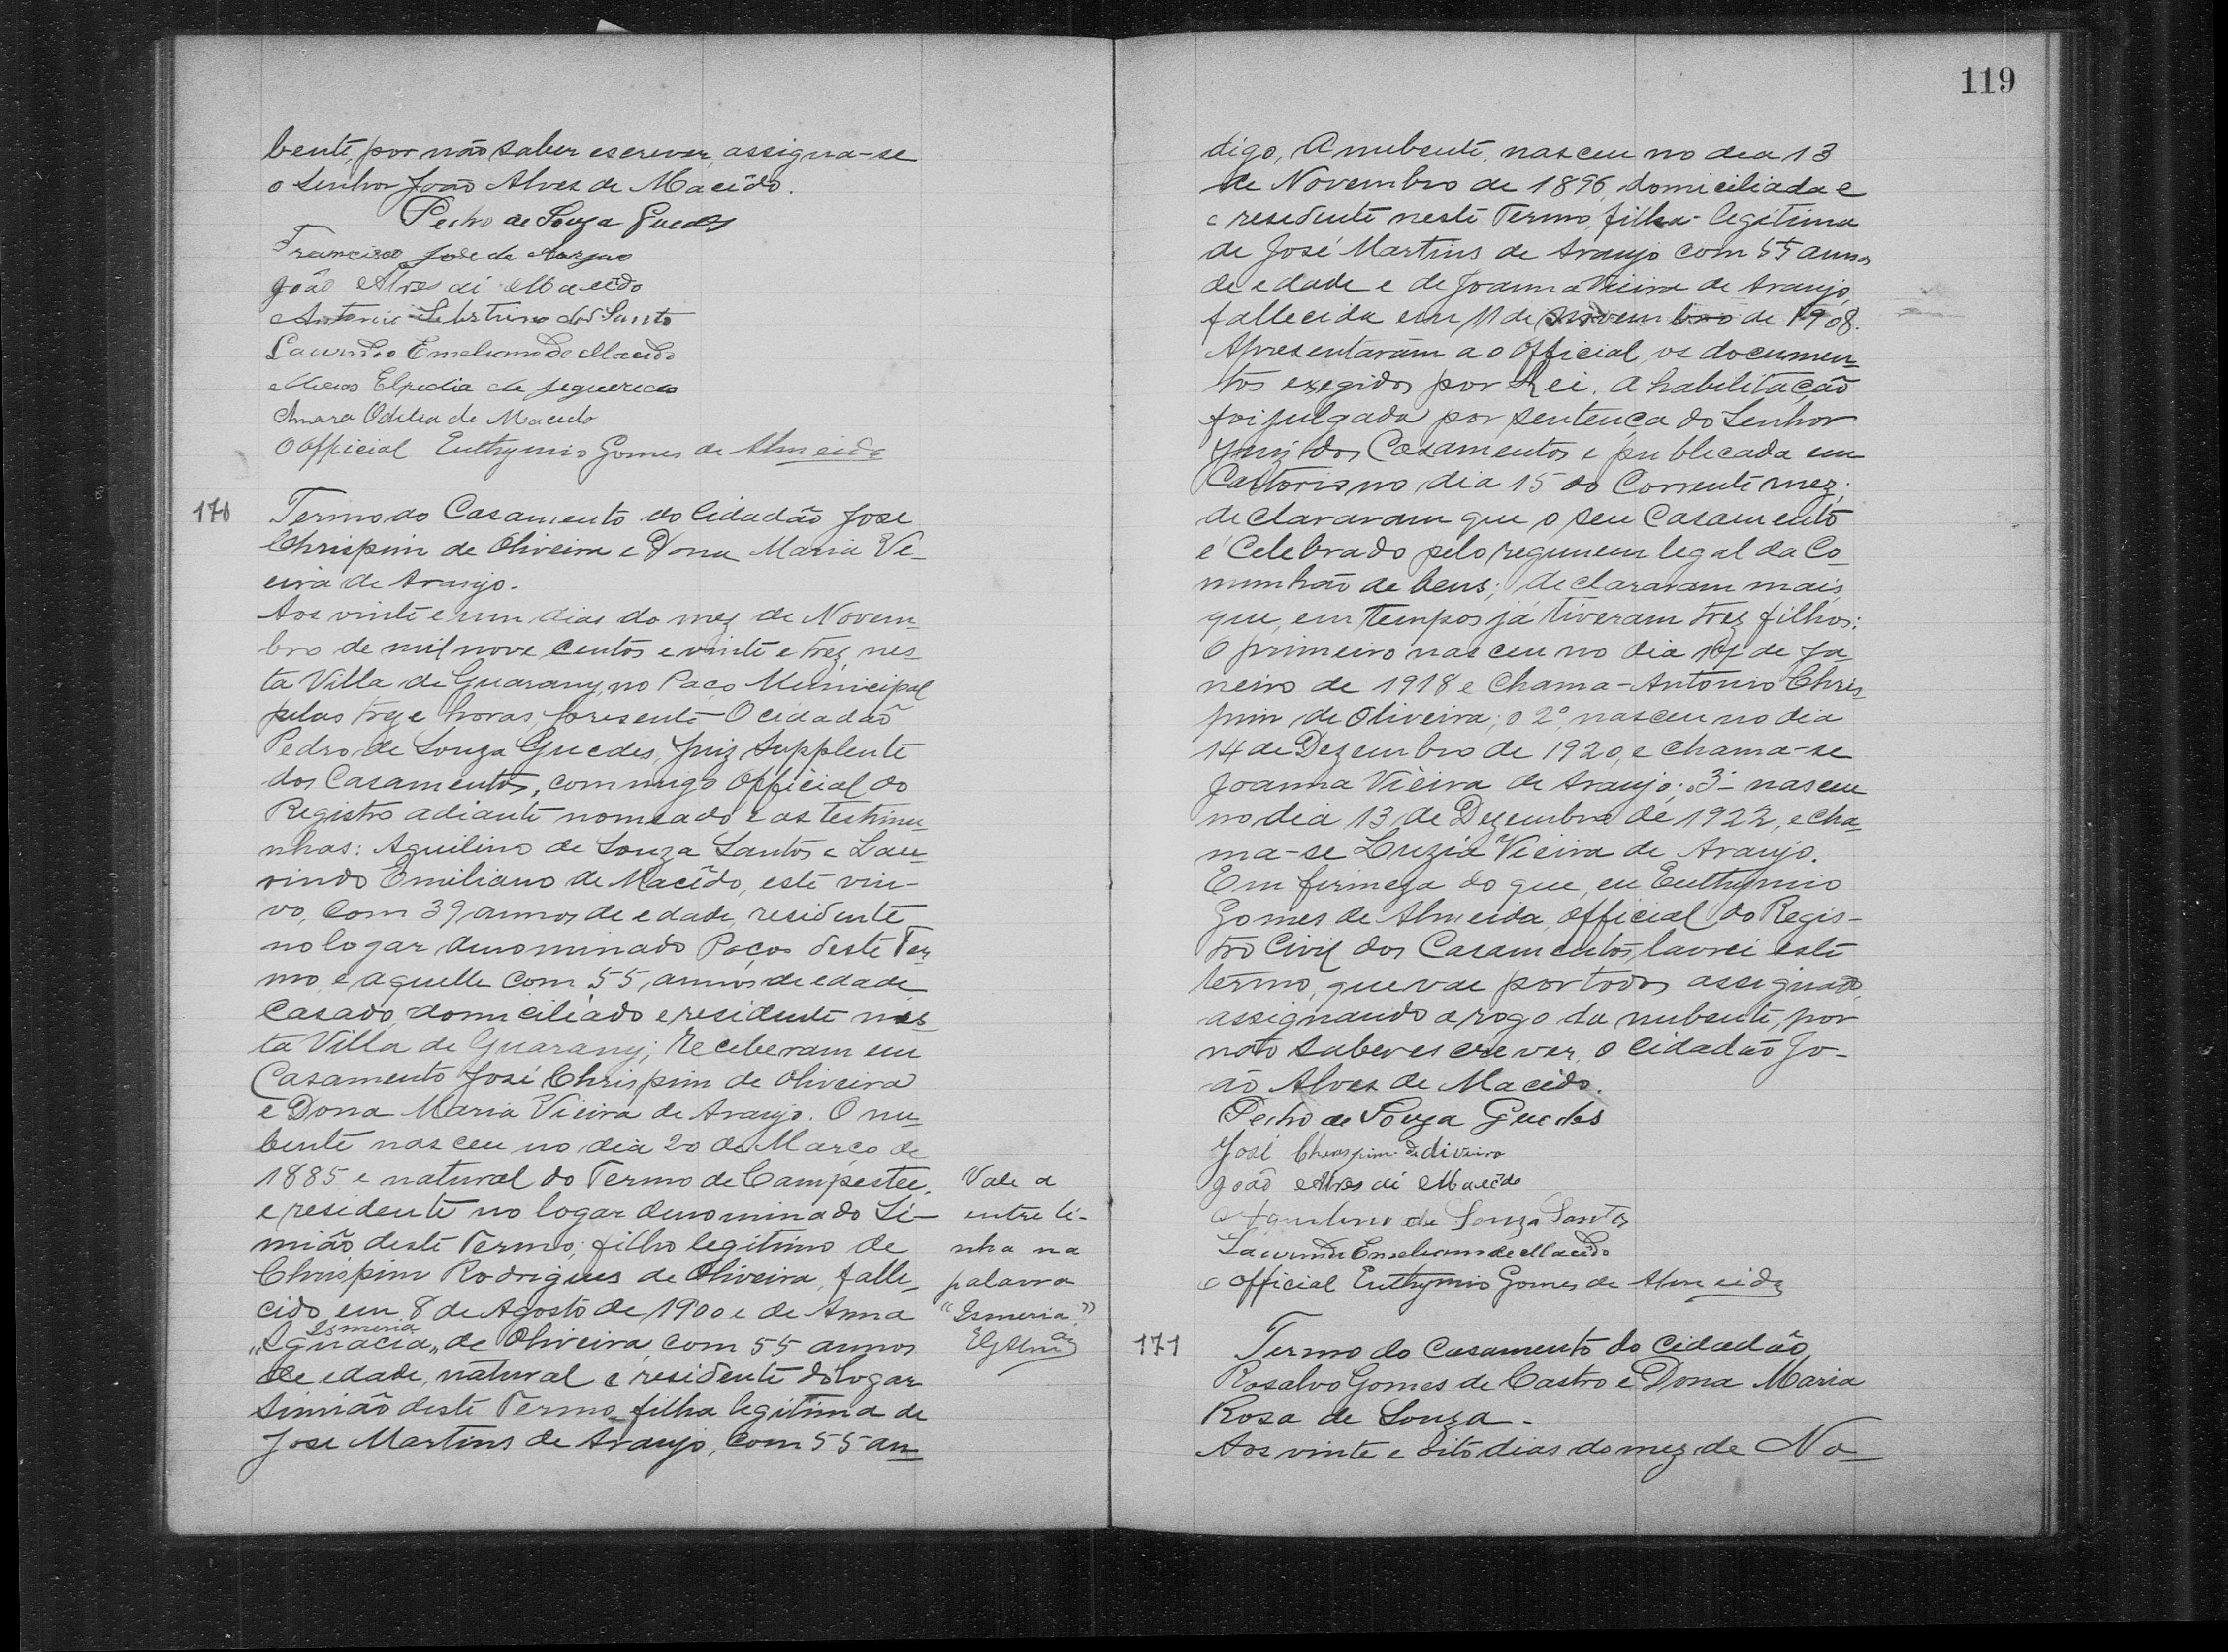 bente, por não saber escrever, assigna-se
o Senhor João Alves de Macêdo.
Pedro de Souza Guedes
Francisco José de Araujo
João Alves di Macêdo
Antonio dos Santo
Laurindo Emeliano de Macedo
Elpidia de
Odilia de Macedo
O Official Euthymio Gomes de Almeida
170
Termo do Casamento do Cidadão José
Chrispim de Oliveira e Dona Maria Vi-
eira de Araujo.
Aos vinte e um dias do mez de Novem-
bro de mil nove centos e vinte e trez, nes-
ta Villa de Guarany, no Paço Municipal
pelas treze horas, presente O cidadão
Pedro de Souza Guedes, Juiz Supplente
dos Casamentos, commigo Official do
Registro adiante nomeado e as testimu-
nhas: Aquilino de Souza Santos e Lau-
rindo Emiliano de Macêdo, este viu-
vo, com 39 annos de edade, residente
no logar denominado Poços deste Ter-
mo, e aquelle com 55 annos de edade,
Casado, domiciliado e residente nes-
ta Villa de Guarany; receberam em
Casamento José Chrispim de Oliveira
e Dona Maria Vieira de Araujo. O nu-
bente nasceu no dia 20 de Março de
1885 e natural do Termo de Campestre,
e residente no logar denominado Si-
mião deste Termo; filho legitimo de
Chrispim Rodrigues de Oliveira, falle-
cido em 8 de Agosto de 1900 e de Anna
Ismeria
"Ignacia" de Oliveira, com 55 annos
de edade, natural e residente do logar
Simião deste Termo, filha legitima de
Jose Martins de Araujo, com 55 an-
Vale a
entre li-
nha na
palavra
"Ismeria."
EGAlmda
119
digo, A nubente, nasceu no dia 13
de Novembro de 1896, domiciliada e
e residente neste Termo, filha legitima
de José Martins de Araujo com 55 annos
de edade e de Joanna Vieira de Araujo,
fallecida em 11 de Novembro de 1908.
Apresentaram ao Official, os documen-
tos exegidos por Lei. A habilitação
foi julgada por sentença do Senhor
Juiz dos Casamentos e publicada em
Cartorio no dia 15 do Corrente mez;
declararam que o seu Casamento
é Celebrado pelo regimem legal da Co-
munhão de bens; declararam mais
que, em tempos já tiveram trez filhos:
O primeiro nasceu no dia de Ja-
neiro de 1918 e Chama-Antonio Chris-
pim de Oliveira; o 2º, nasceu no dia
14 de Dezembro de 1920, e chama-se
Joanna Vieira de Araujo; o 3º nasceu
no dia 13 de Dezembro de 1922, e cha-
ma-se Luzia Vieira de Araujo.
Em firmeza do que, eu Euthymio
Gomes de Almeida, Official do Regis-
tro Civil dos Casamentos, lavrei este
termo, que vae por todos assignado,
assignando a rogo da nubente, por
não saber escrever, o cidadão Jo-
ão Alves de Macêdo.
Pedro de Souza Guedes
José Chrespim de Oliveira
João Alves di Macêdo
Aquilino de Souza Santos
Laurindo Emeliano de Macêdo
O Official Euthymio Gomes de Almeida
171
Termo do Casamento do Cidadão
Rosalvo Gomes de Castro e Dona Maria
Rosa de Souza.
Aos vinte e oito dias do mez de No-